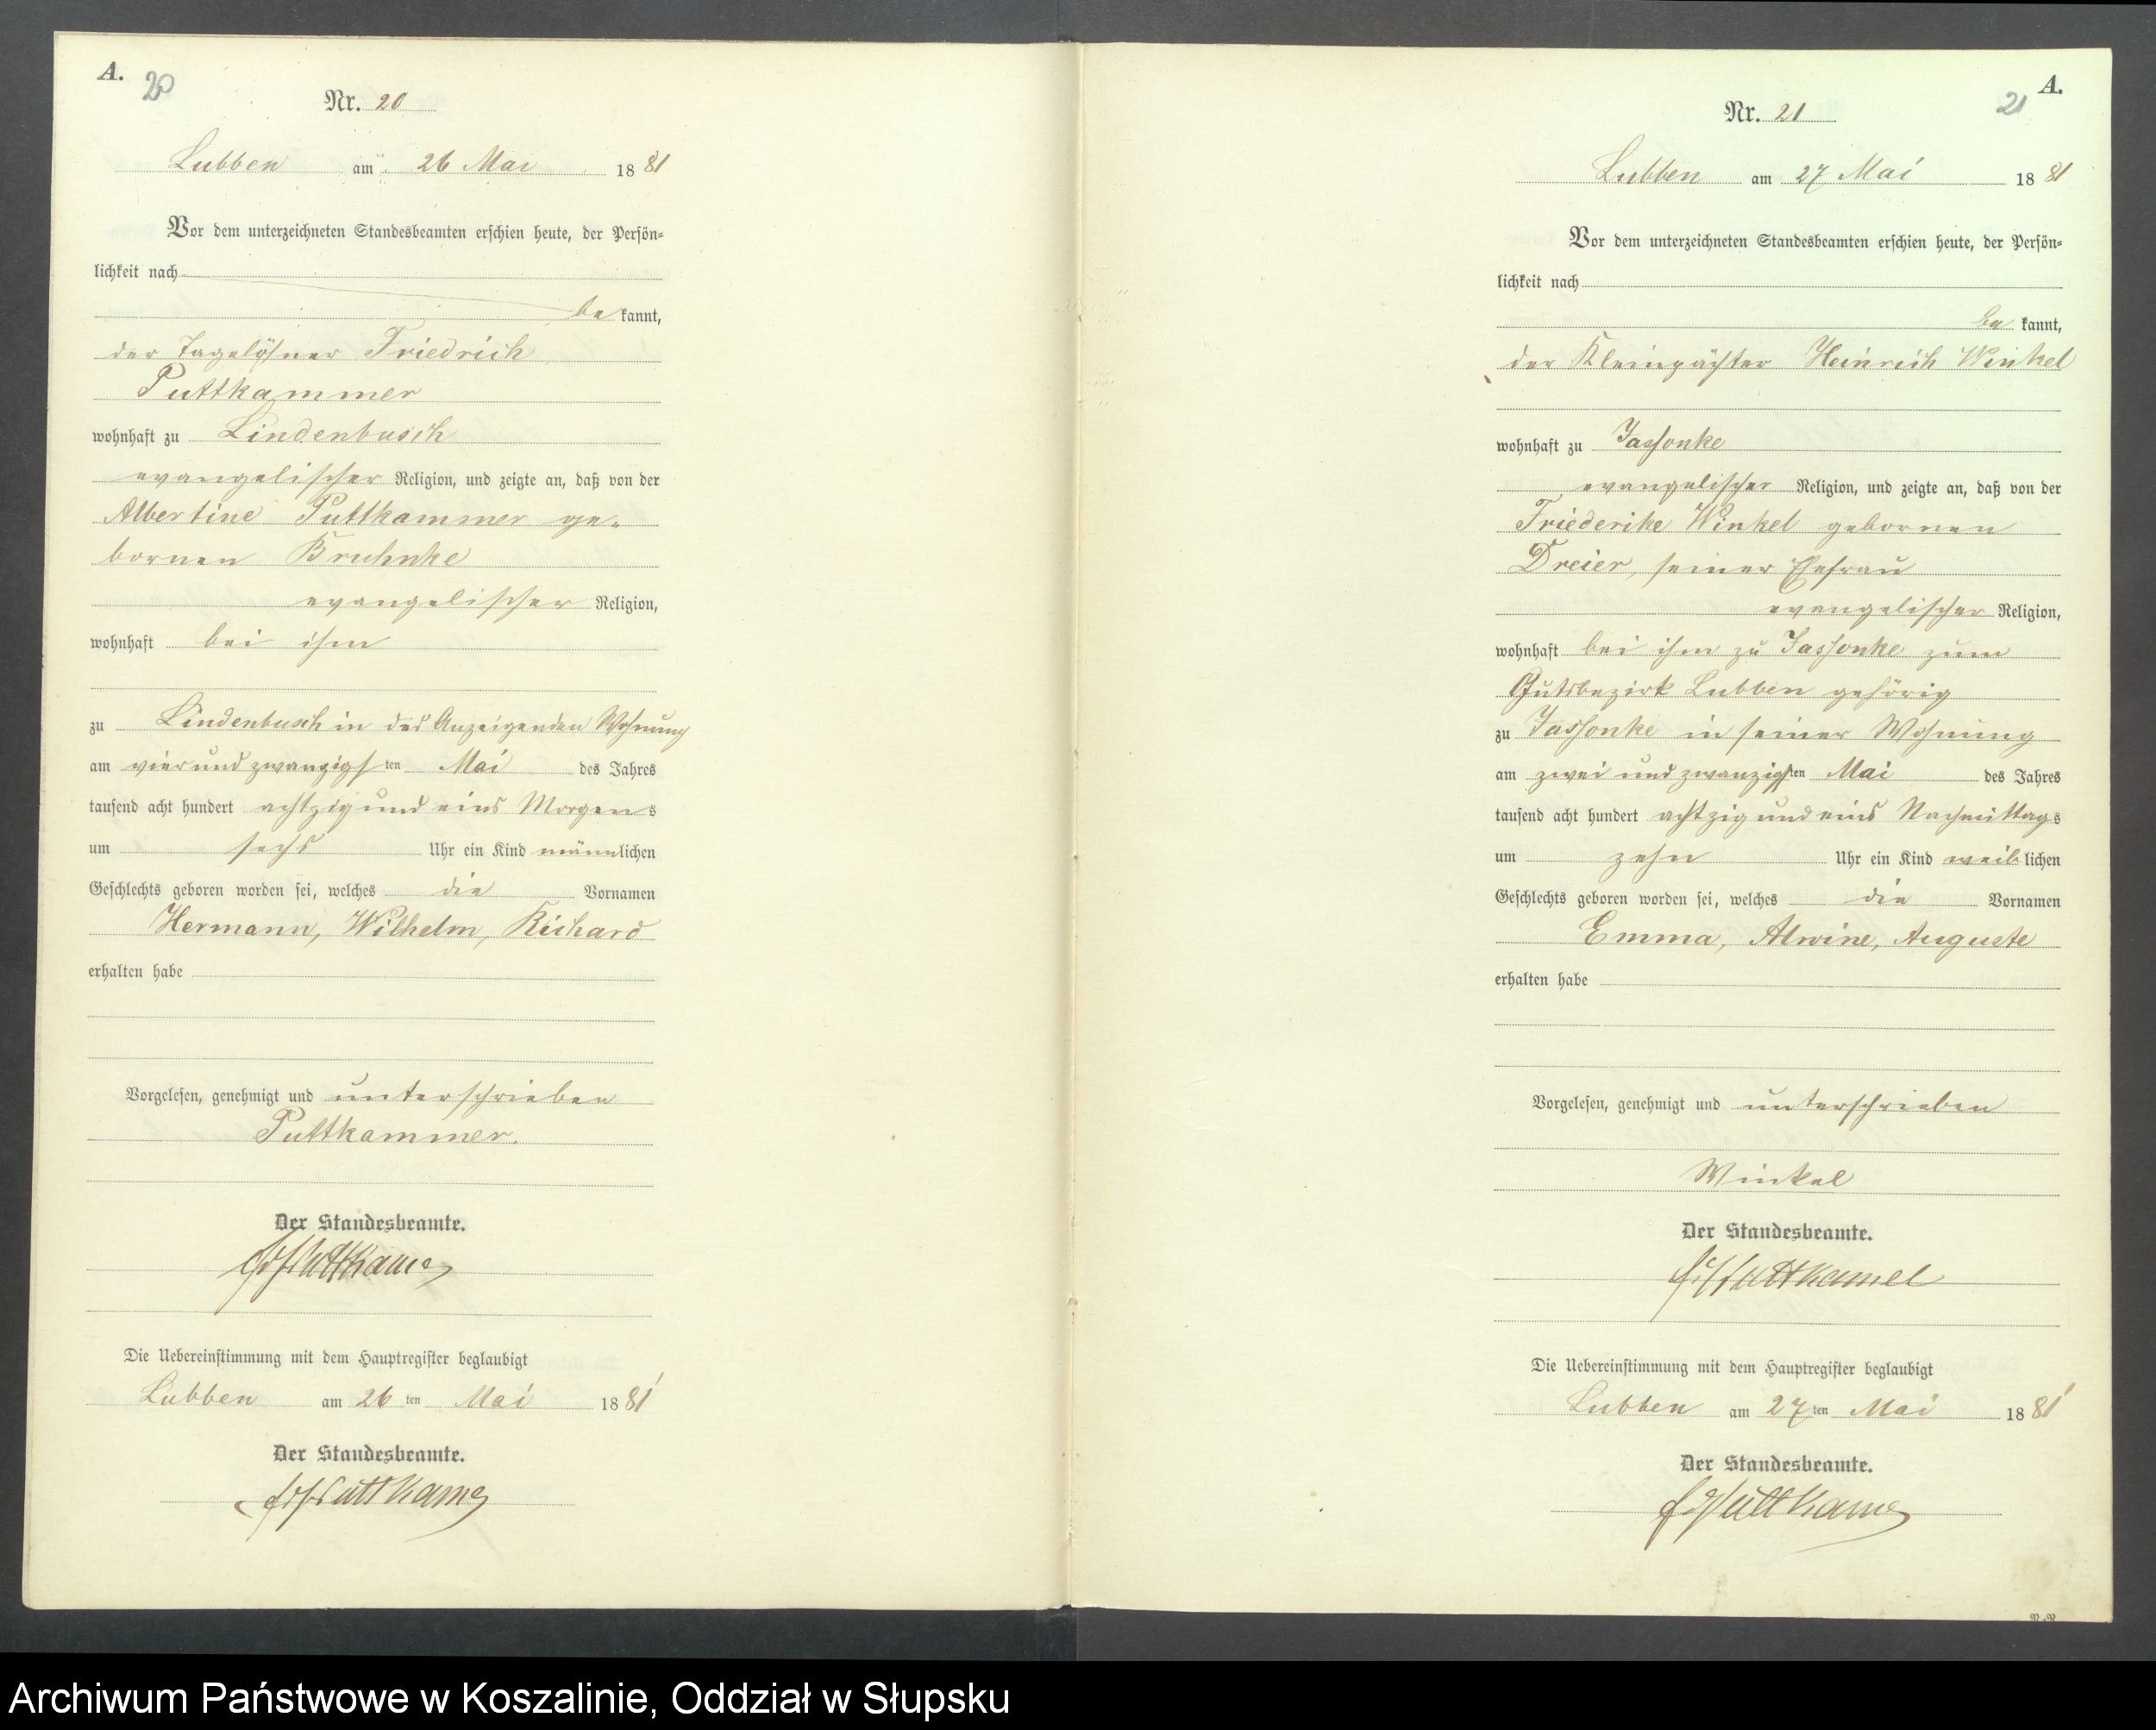 A.
20
Nr. 20
Lubben am 26 Mai 1881
Vor dem unterzeichneten Standesbeamten erschien heute, der Persön-
lichkeit nach
bekannt,
der Tagelöhner Friedrich
Puttkammer
wohnhaft zu Lindenbusch
evangelischer Religion, und zeigte an, daß von der
Albertine Puttkammer ge-
bornen Bruhnke
evangelischer Religion,
wohnhaft bei ihm
zu Lindenbusch in des Anzeigenden Wohnung
am vier und zwanzigsten Mai des Jahres
tausend acht hundert achtzig und eins Morgens
um sechs Uhr ein Kind männlichen
Geschlechts geboren worden sei, welches die Vornamen
Hermann, Wilhelm, Richard
erhalten habe
Vorgelesen, genehmigt und unterschrieben
Puttkammer.
Der Standesbeamte.
Puttkamer
Die Uebereinstimmung mit dem Hauptregister beglaubigt
Lubben am 26ten Mai 1881
Der Standesbeamte.
Puttkamer
A.
21
Nr. 21
Lubben am 27 Mai 1881
Vor dem unterzeichneten Standesbeamten erschien heute, der Persön-
lichkeit nach
bekannt,
der Kleinpächter Heinrich Winkel
wohnhaft zu Jassonke
evangelischer Religion, und zeigte an, daß von der
Friederike Winkel gebornen
Dreier, seiner Ehefrau
evangelischer Religion,
wohnhaft bei ihm zu Jassonke zum
Gutsbezirk Lubben gehörig
zu Jassonke in seiner Wohnung
am zwei und zwanzigsten Mai des Jahres
tausend acht hundert achtzig und eins Nachmittags
um zehn Uhr ein Kind weiblichen
Geschlechts geboren worden sei, welches die Vornamen
Emma, Alwine, Auguste
erhalten habe
Vorgelesen, genehmigt und unterschrieben
Winkel
Der Standesbeamte.
Puttkamer
Die Uebereinstimmung mit dem Hauptregister beglaubigt
Lubben am 27ten Mai 1881
Der Standesbeamte.
Puttkamer
Archiwum Państwowe w Koszalinie, Oddział w Słupsku